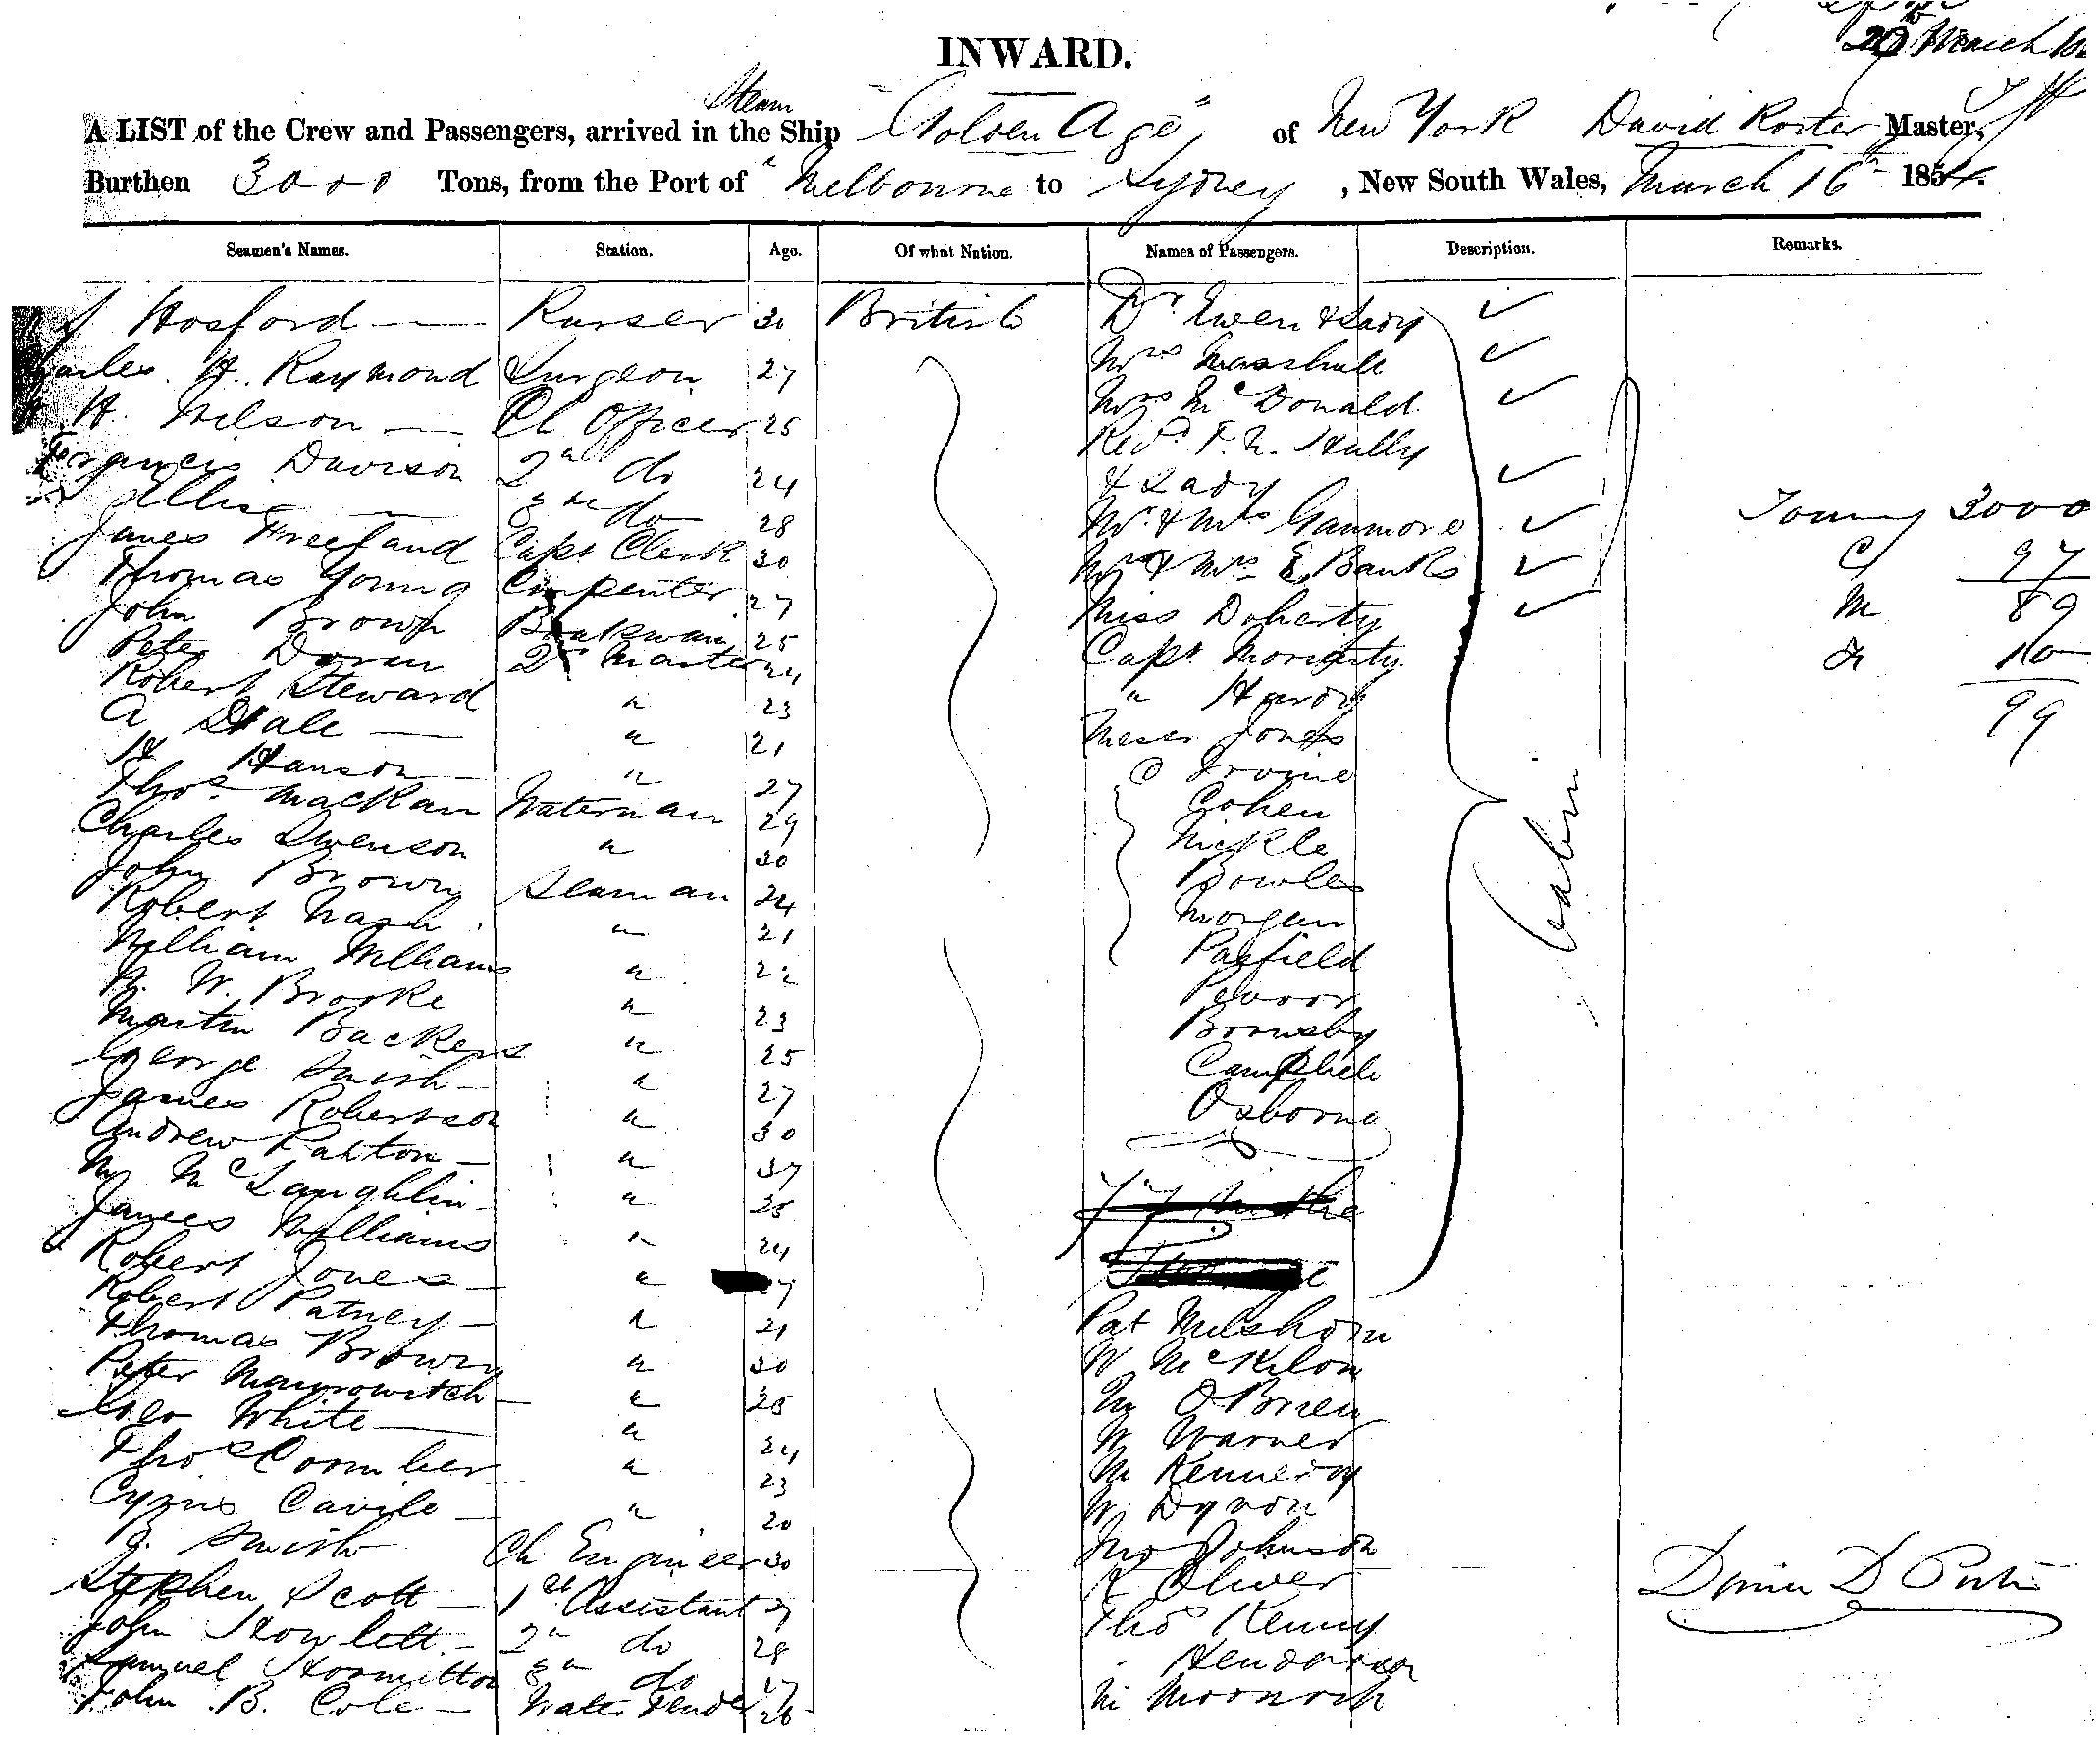 20th March
INWARD.
Steam
A LIST of the Crew and Passengers, arrived in the Ship "Golden Age" of New York David Porter Master,
Burthen 3000 Tons, from the Port of Melbourne to Sydney, New South Wales, March 16th 1854.
Seamen's Names. Station. Age. Of what Nation. Names of Passengers. Description. Remarks.
Hosford — Purser 30 British Dr Ewen & Lady ✓
Charles H. Raymond Surgeon 27 Mrs ✓
H. Wilson — Ch Officer 25 Mrs McDonald ✓
Francis Davison 2nd do 24 Revd. Hully
Ellis — 3rd do 28 & Lady ✓
James Freeland Capt Clerk 30 Mr & Mrs Ganmore ✓
Thomas Young Carpenter 27 Mr & Mrs E. Banks ✓
John Brown Boatswain 25 Miss Doherty ✓
Peter Doran Qr Master 24 Capt. Moriarty
Robert Steward " 23 " Hardy
A Hale — " 21 Messr Jones
H Hanson — " 27 Irvine
Thos. Mackan Waterman 29 Cohen
Charles Swenson " 30 Nickle
John Brown Seaman 24 Bowles
Robert Nash " 21 Morgan
William Williams " 22 Parfield
H. W. Brooke " 23
Martin Backers " 25 Bornsby
George Smith — " 27 Campbell
James Robertson " 30 Osborne
Andrew Paxton — " 37
M McLaughlin " 28
James Williams " 24
Robert Jones — " 27
Robert Patney — " 21 Pat
Thomas Brown " 30 W
Peter Mavrowitch — " 28 M O'Brien
Geo White — " 24 W Warner
Thos Coomber " 23 M Kennedy
Cyprus Cavile — " 20 W. Dynon
J. Smith Ch Engineer 30 Jno Johnson
Stephen Scott — 1st Assistant 27 R Oliver
John Howlett — 2nd do 28 Thos Kenny
Samuel Hormitton 3rd do 27 Henderson
John B. Cole — Water Tender 26 M
Cabin
Tonnage 3000
C 97
M 89
F 10
99